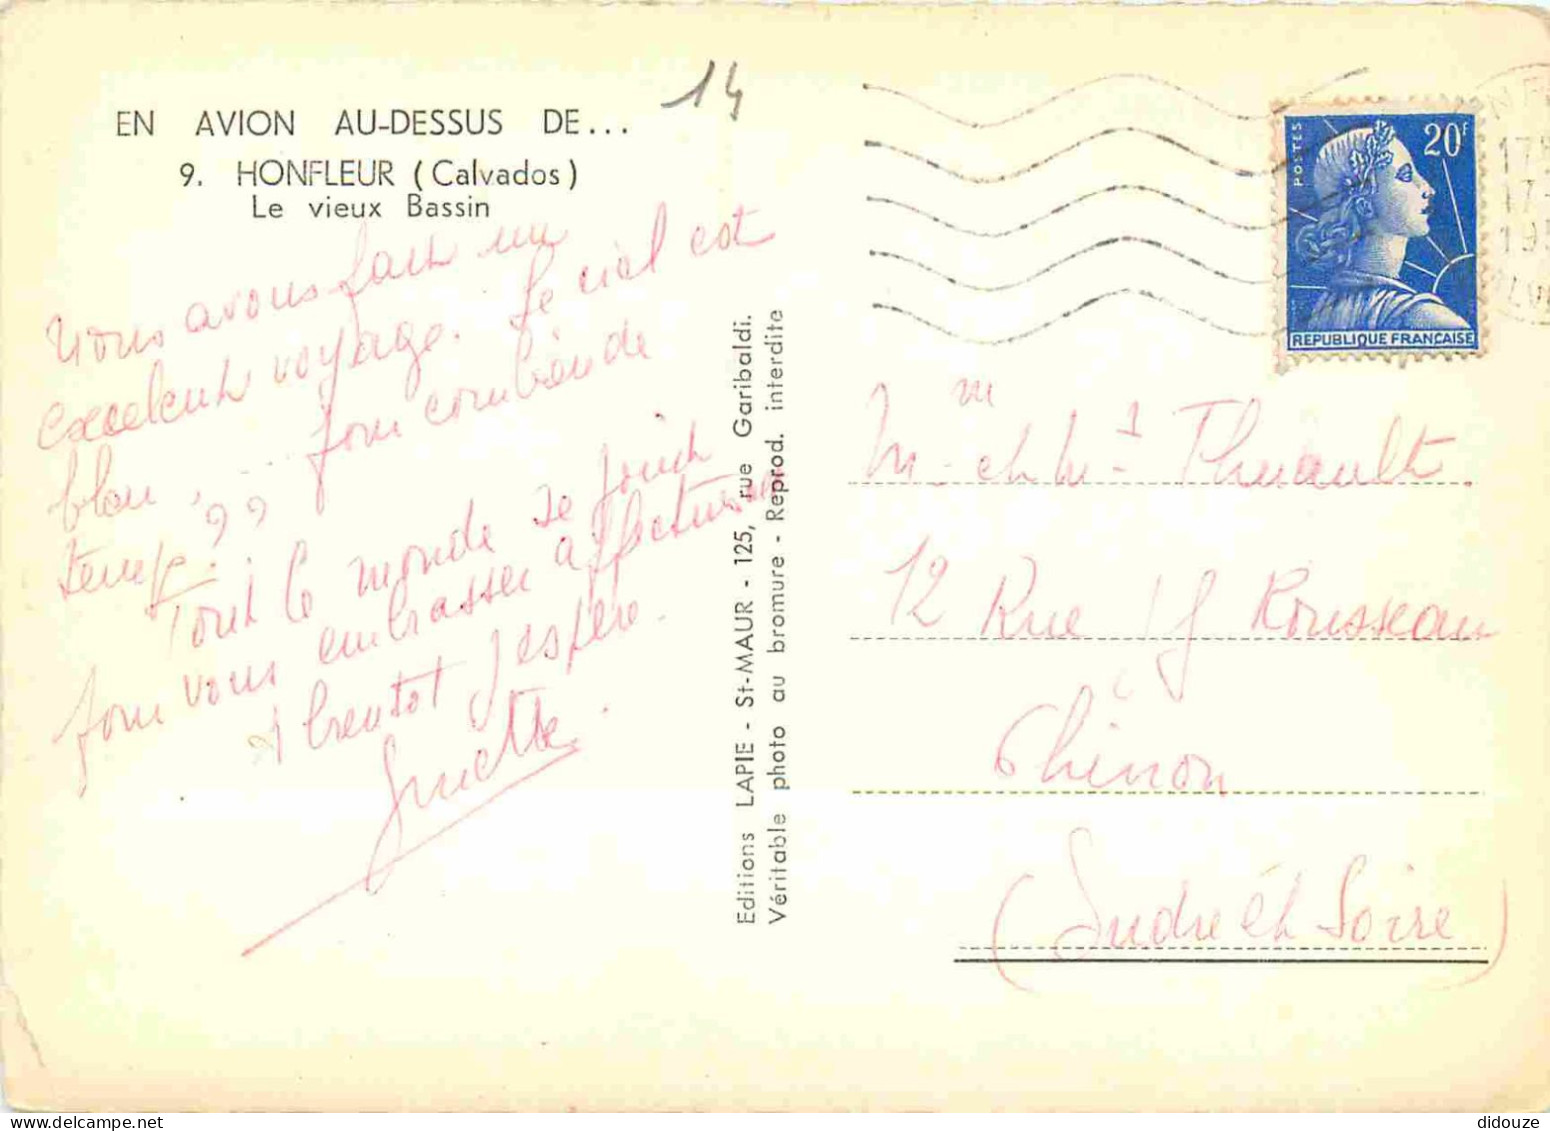 14
EN AVION AU-DESSUS DE...
9. HONFLEUR (Calvados)
Le vieux Bassin
Nous avons fait un
excellent voyage. Le ciel est
bleu, ... pour combien de
temps ??
Tout le monde se joint
pour vous embrasser affectueusement
A bientot j'espère.
Editions LAPIE - St-MAUR - 125, rue Garibaldi.
Véritable photo au bromure - Reprod. interdite
POSTES
20F
REPUBLIQUE FRANCAISE
17-
195
Mr et Mme Thuault
12 Rue JJ Rousseau
Chinon
(Indre et Loire)
didouze